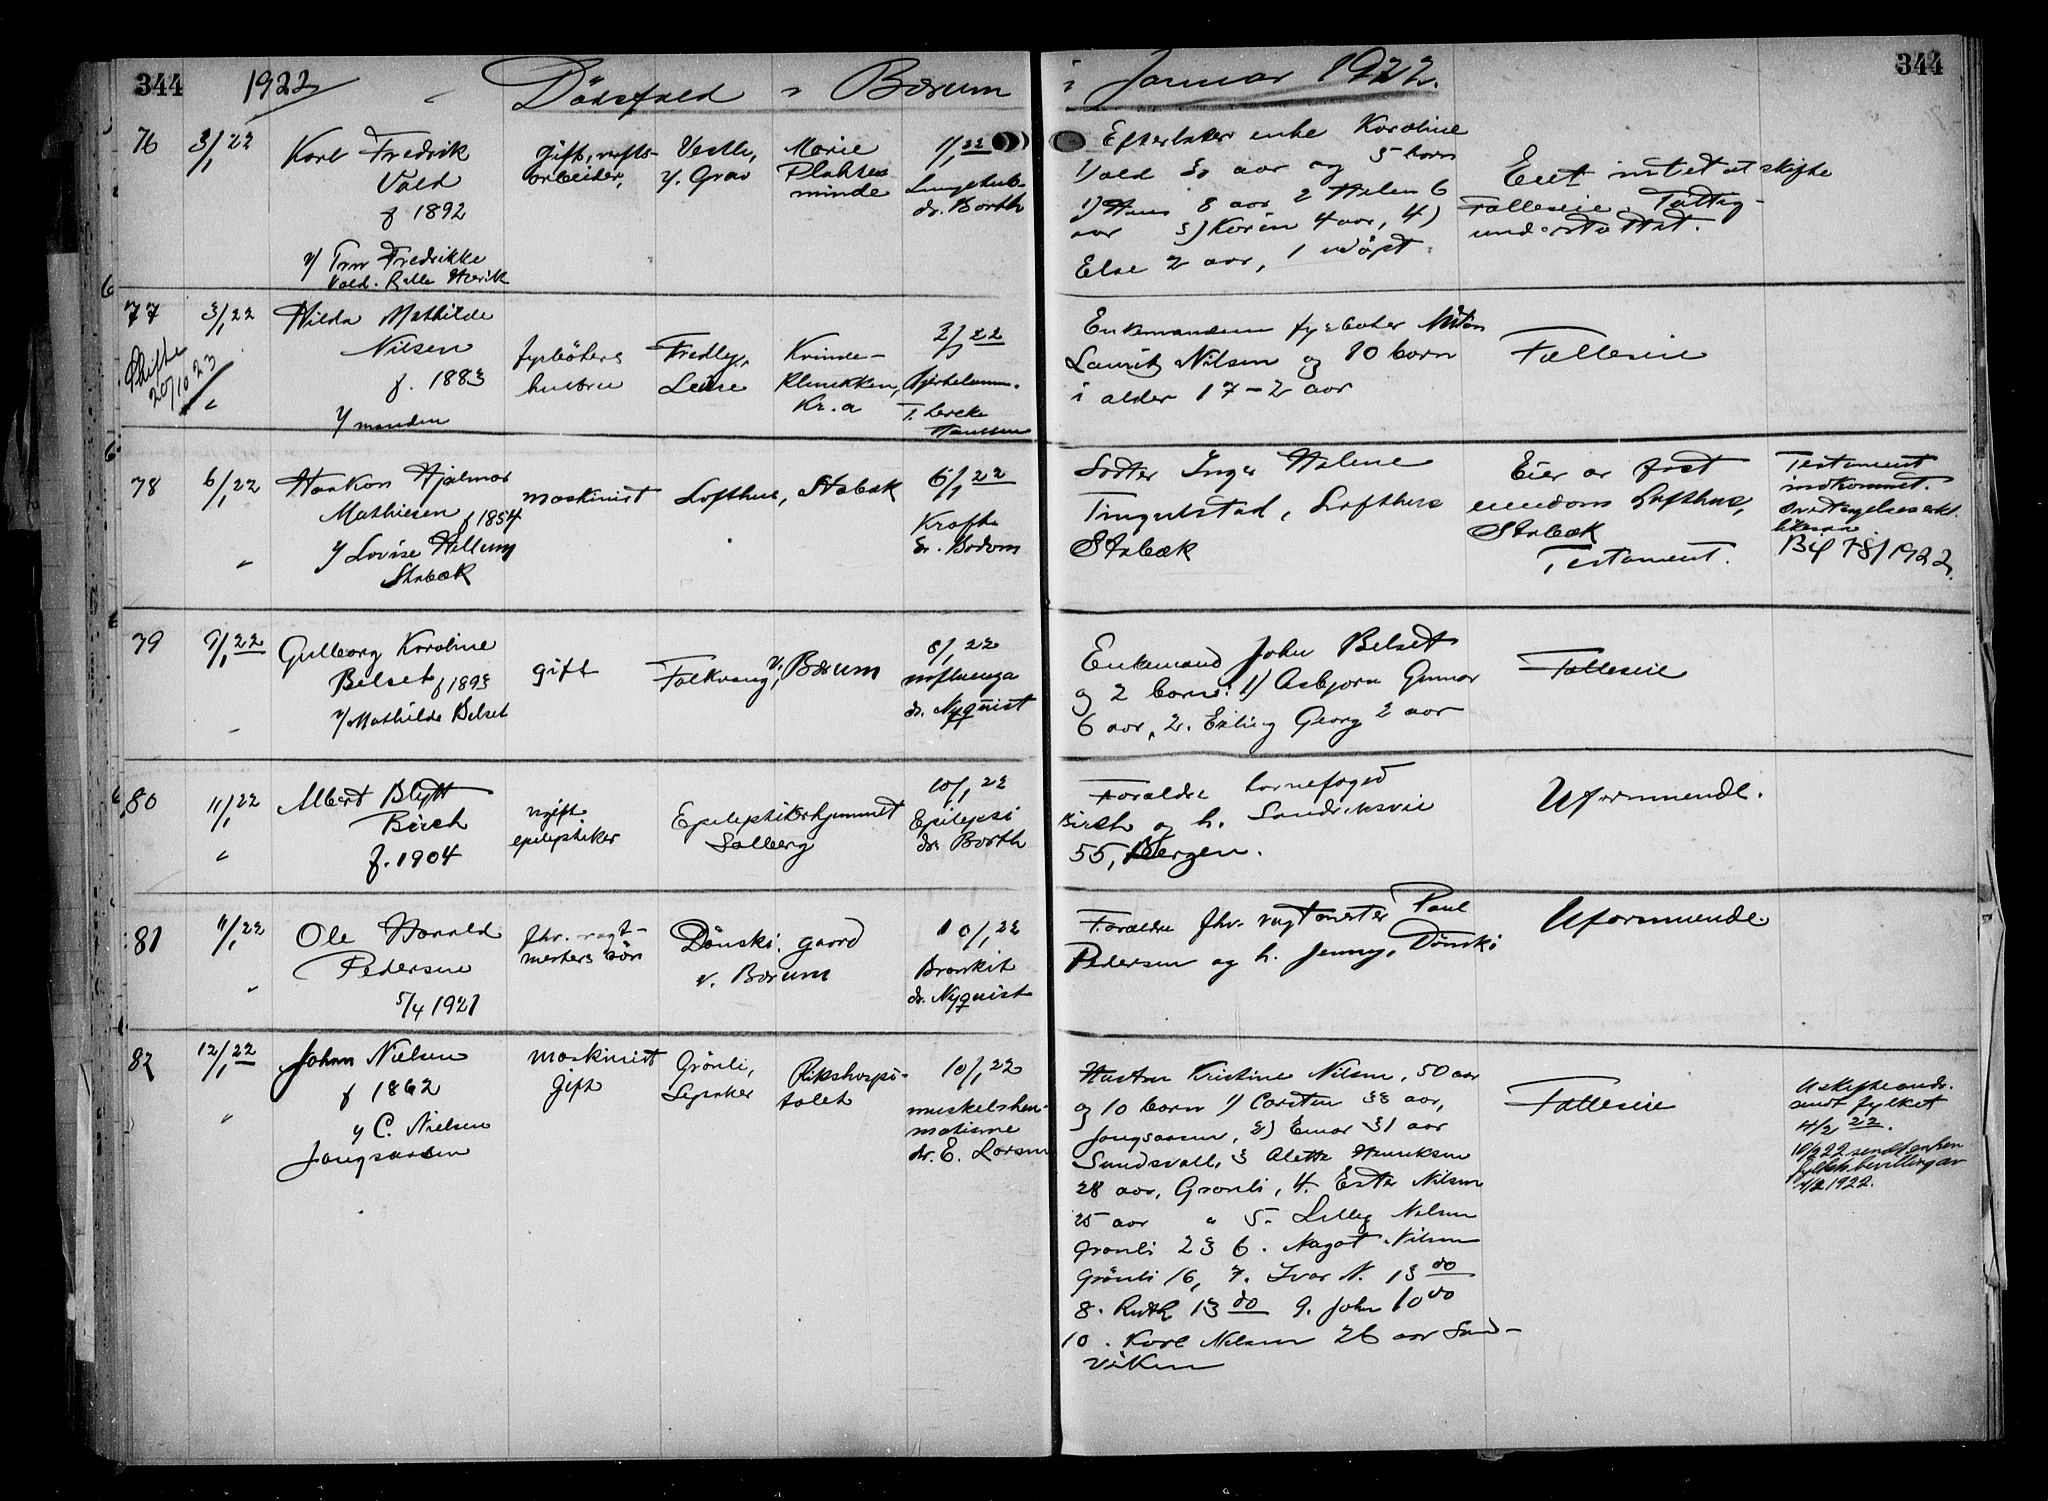 344
1922
Dödsfald i Bærum
i Januar 1922.
344
76
3/1 22
Karl Fredrik
Vold
f 1892
v/ Fru Fredrikke
Vold.
gift,
arbeider,
Vestli,
v. Grav
Marie
Plahtes
minde
1/1 22
dr. Borth
Efterlater enke Karoline
Vold 30 aar og 5 barn
1) Hans 8 aar 2 Helen 6
aar 3) Karin 4 aar, 4)
Else 2 aar, 1 udöpt.
Eiet intet at skifte
Fælleseie. Fattig-
understöttet.
77
3/1 22
Skifte
20/10 23
Hilda Mathilde
Nilsen
f. 1883
v/ manden
fyrböters
hustru
Fredly,
Kvinde-
klinikken,
Kr.a
3/1 22
Hanssen
Enkemanden fyrböter
Laurits Nilsen og 10 barn
i alder 17-2 aar
Fælleseie
78
6/1 22
Haakon Hjalmar
Mathiesen f 1854
v/ Lovise Hellum
Stabæk
maskinist
Lofthus, Stabæk
6/1 22
Kræft
dr. Bodom
Söster Inga Halene
Tingulstad, Lofthus
Stabæk
Eier av fast
eiendom Lofthus,
Stabæk
Testament.
Testament
indkommet.
likesaa
Bil 78/1922.
79
9/1 22
Gulborg Karoline
Belset f 1893
v/ Mathilde Belset
gift
Folkvang, v. Bærum
8/1 22
influenza
dr. Nyquist
Enkemand John Belset
og 2 barn: 1) Asbjörn Gunnar
6 aar, 2. Erling Georg 2 aar
Fælleseie
80
11/1 22
Albert Blytt
Birch
f. 1904
ugift
epileptiker
Epileptikerhjemmet
Solberg
10/1 22
Epilepsi
dr. Borth
Forældre
Birch og h. Sandviksvei
55, Bergen.
Uformuende.
81
11/1 22
Ole Harald
Pedersen
5/4 1921
fhv. vagt-
mesters sön
Dönski gaard
v. Bærum
10/1 22
Bronkit
dr. Nyquist
Forældre fhv. vagtmester Paul
Pedersen og h. Jenny, Dönski
Uformuende
82
12/1 22
Johan Nielsen
f 1862
v/ C. Nielsen
maskinist
gift
Grönli,
Lysaker
Rikshospi-
talet
10/1 22
dr. E. Larsen
Hustru Kristine Nilsen, 50 aar
og 10 barn 1) Carsten 33 aar,
2) Einar 31 aar
Sundsvall, 3 Alette Henriksen
28 aar, Grönli, 4. Ester Nilsen
25 aar " 5. Lilly Nilsen
Grönli 23 6. Magot Nilsen
Grönli 16, 7. Ivar N. 13 do
8. Ruth 13 do 9. John 10 do
10. Karl Nilsen 26 aar Sand-
viken
Fælleseie
sendt fylket
4/2 22.
10/2 22 sendt enken
fylkets bevilling av
1922.